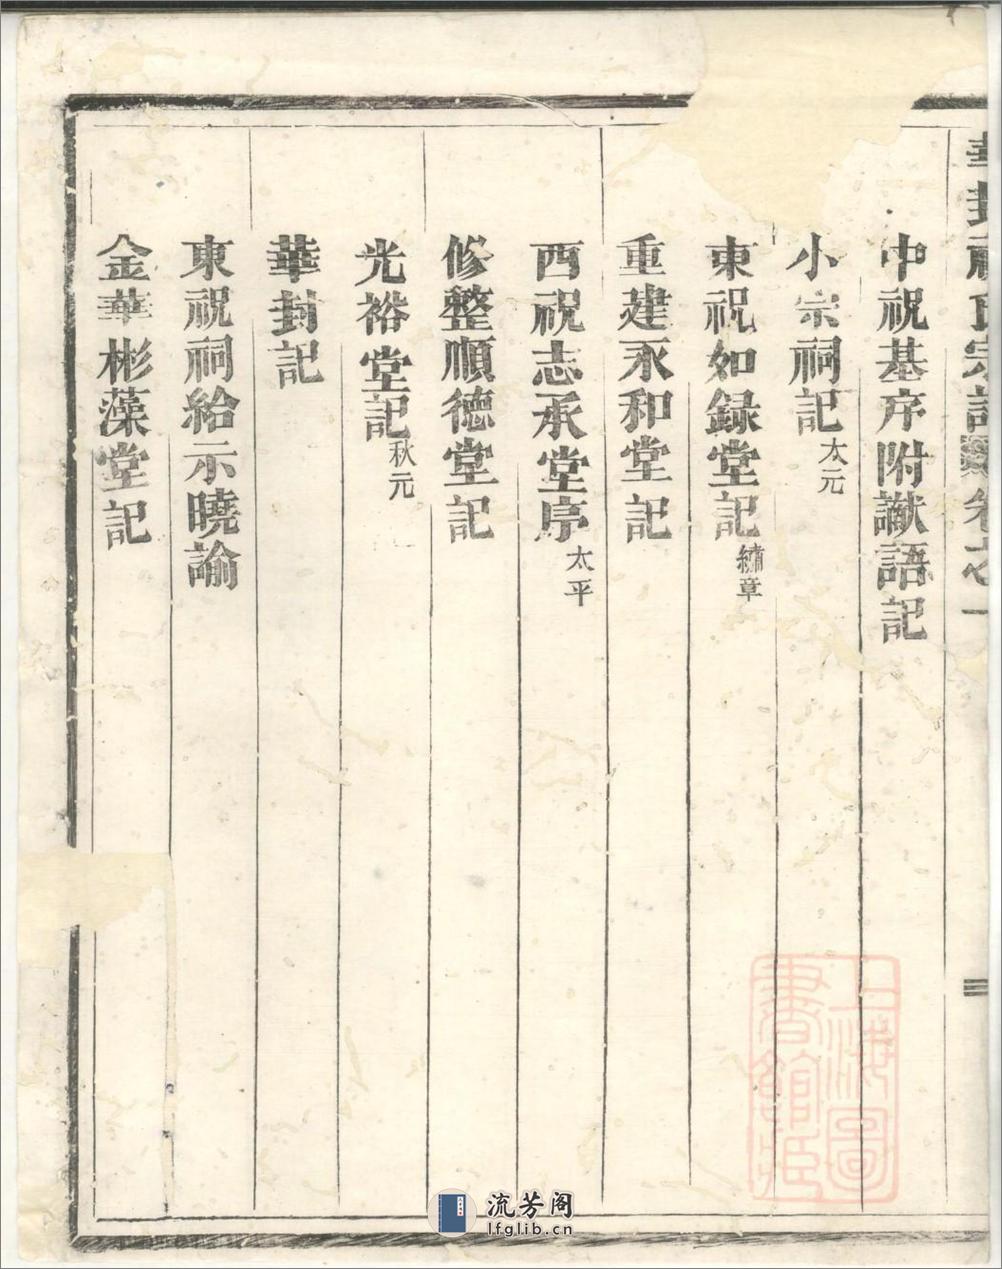 中祝基序附讞語記
小宗祠記太元
東祝如録堂記繡章
重建永和堂記
西祝志承堂序太平
修整順德堂記
光裕堂記秋元
華封記
東祝祠給示曉諭
金華彬藻堂記
華封祝氏宗譜 卷之一
二
上海圖書館藏
流芳阁
lfglib.cn